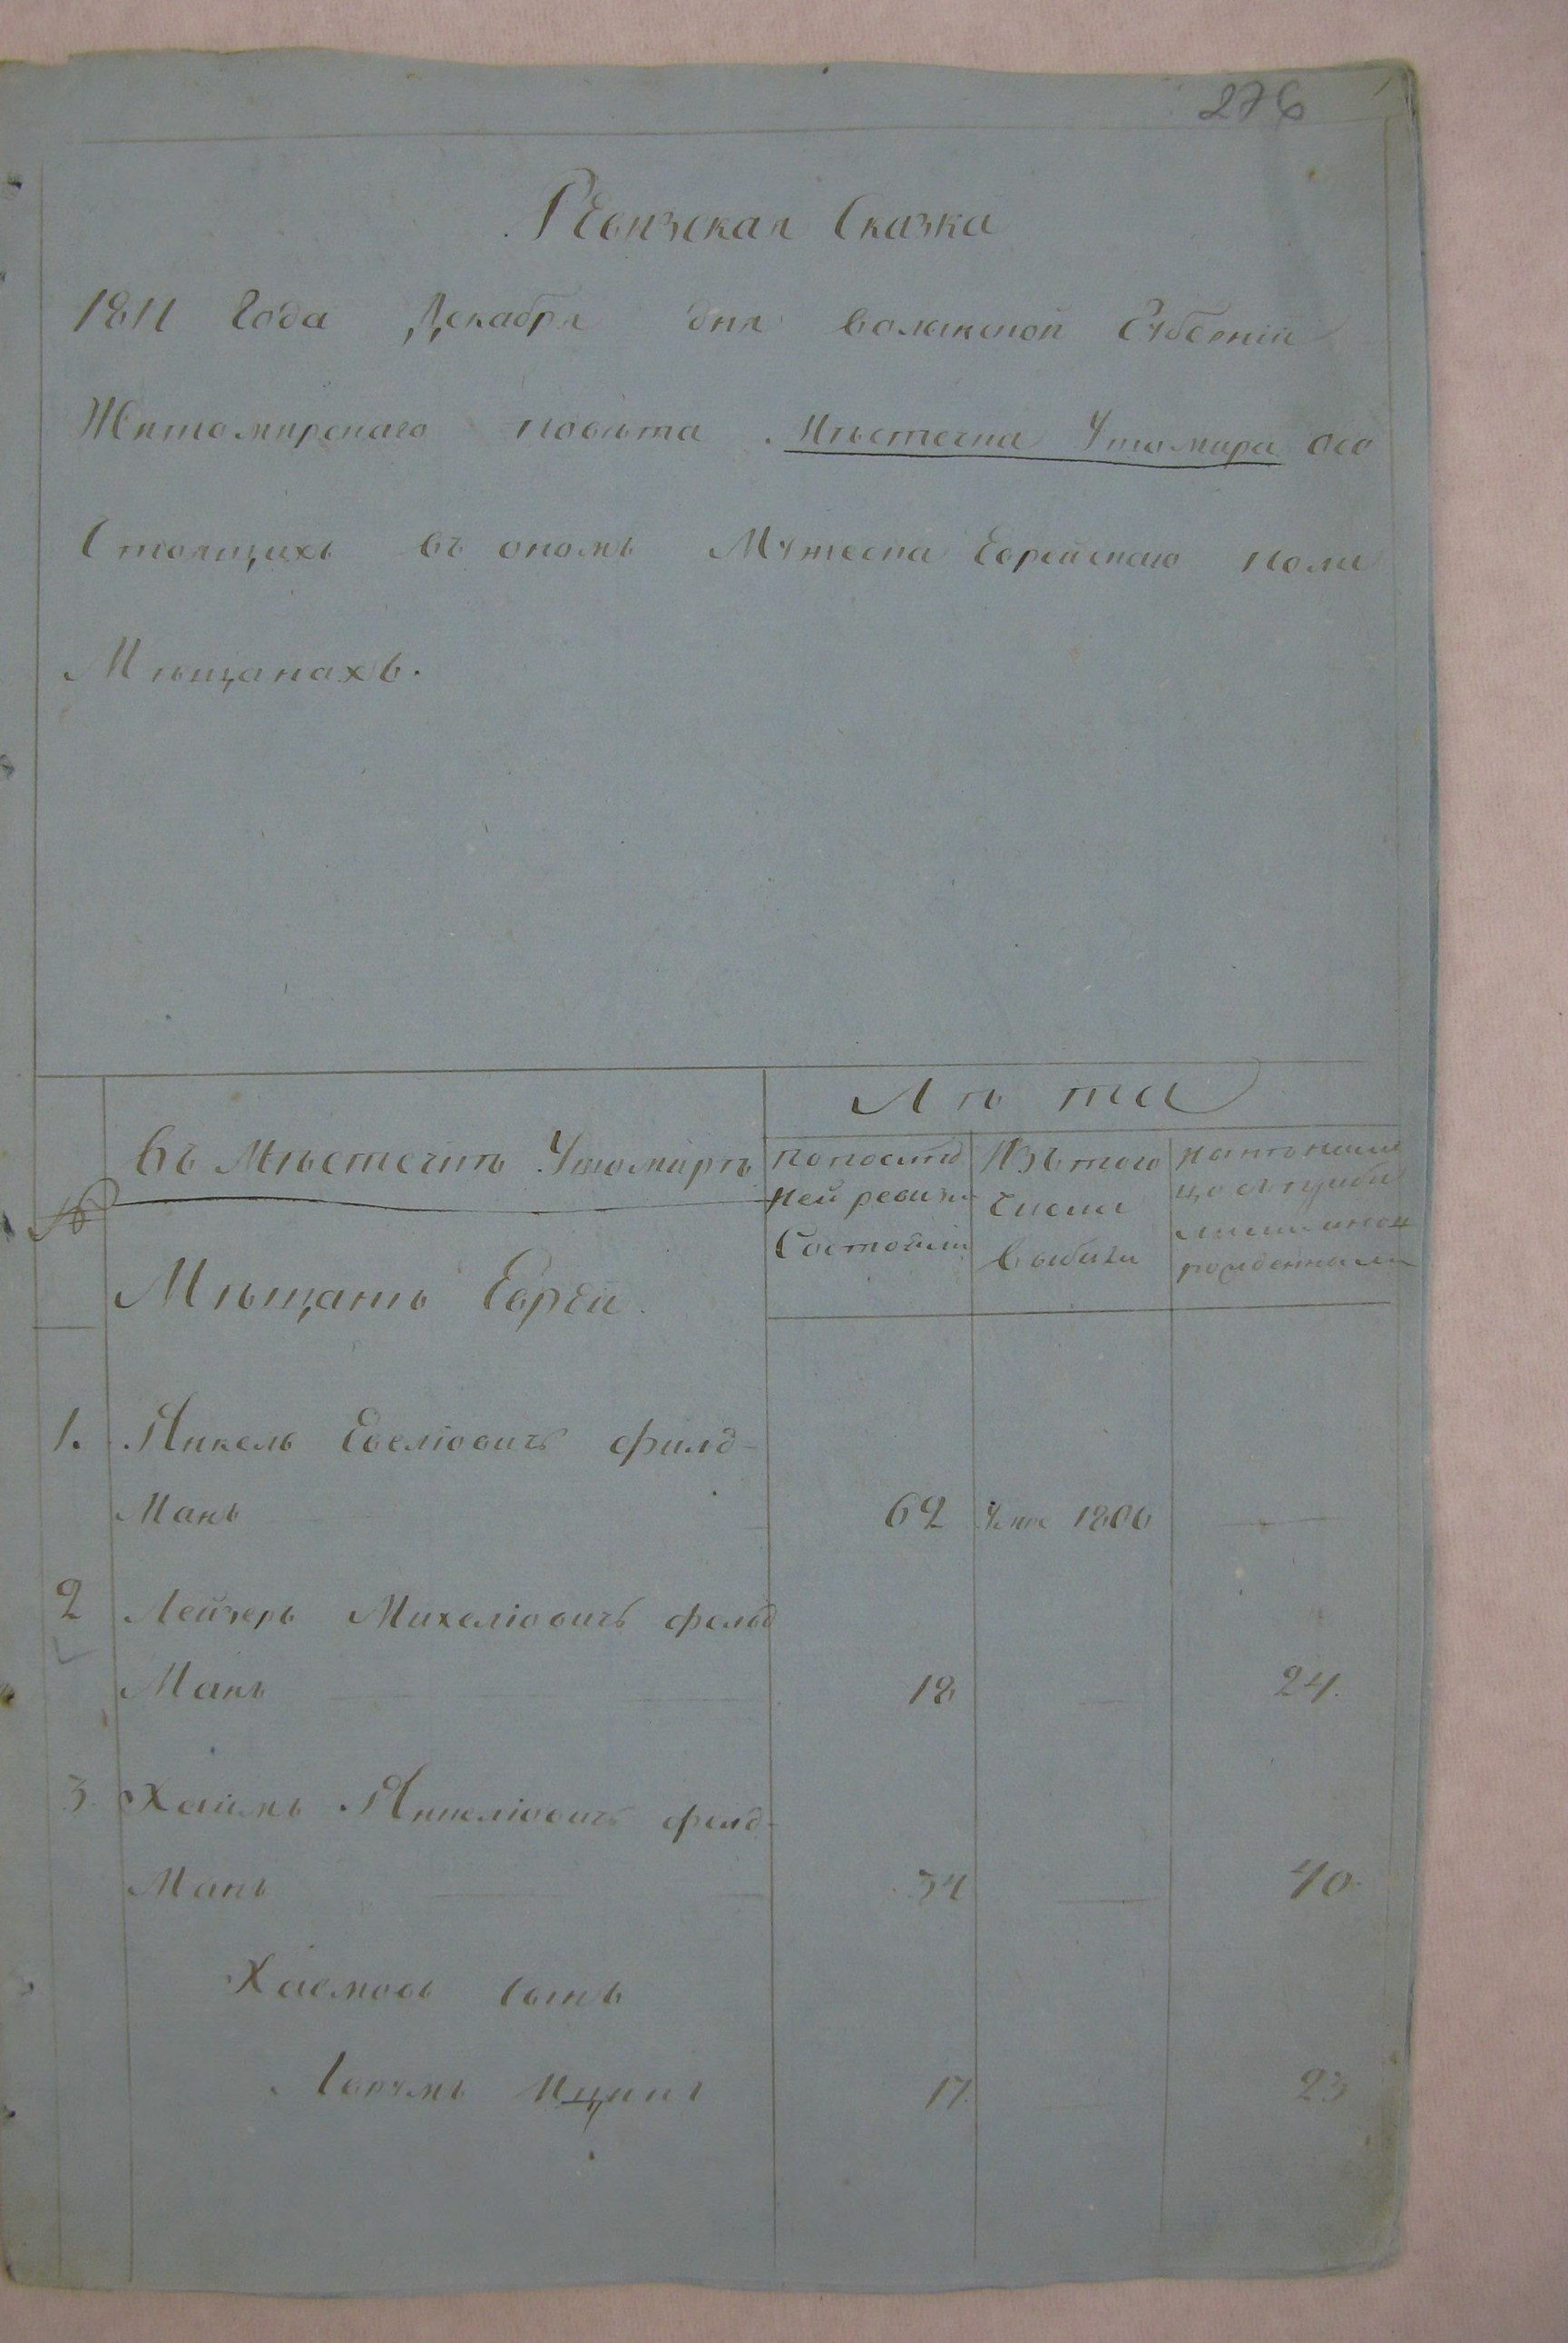 276
Ревизская Сказка
1811 Года Декабря дня волынской Губерніи
Житомирскаго повѣта Мѣстечка Ушомира осо
Стоящихъ въ ономъ Мужеска Еврейскаго пола
Мѣщанахъ.
№
въ Мѣстечкѣ Ушомирѣ
Мѣщанъ Евреи.
Лѣта
по послѣд
ней ревизіи
Состояли
Изъ того
Числа
выбыли
рожденными
1. Янкель Евеліовичъ филд-
Манъ 62 1806
2 Лейзеръ Михеліовичъ фельд
Манъ 18 24.
3 Хаимъ Янкеліовичъ фелд-
Манъ 34 40.
Хаемовъ Сынъ
17. 23